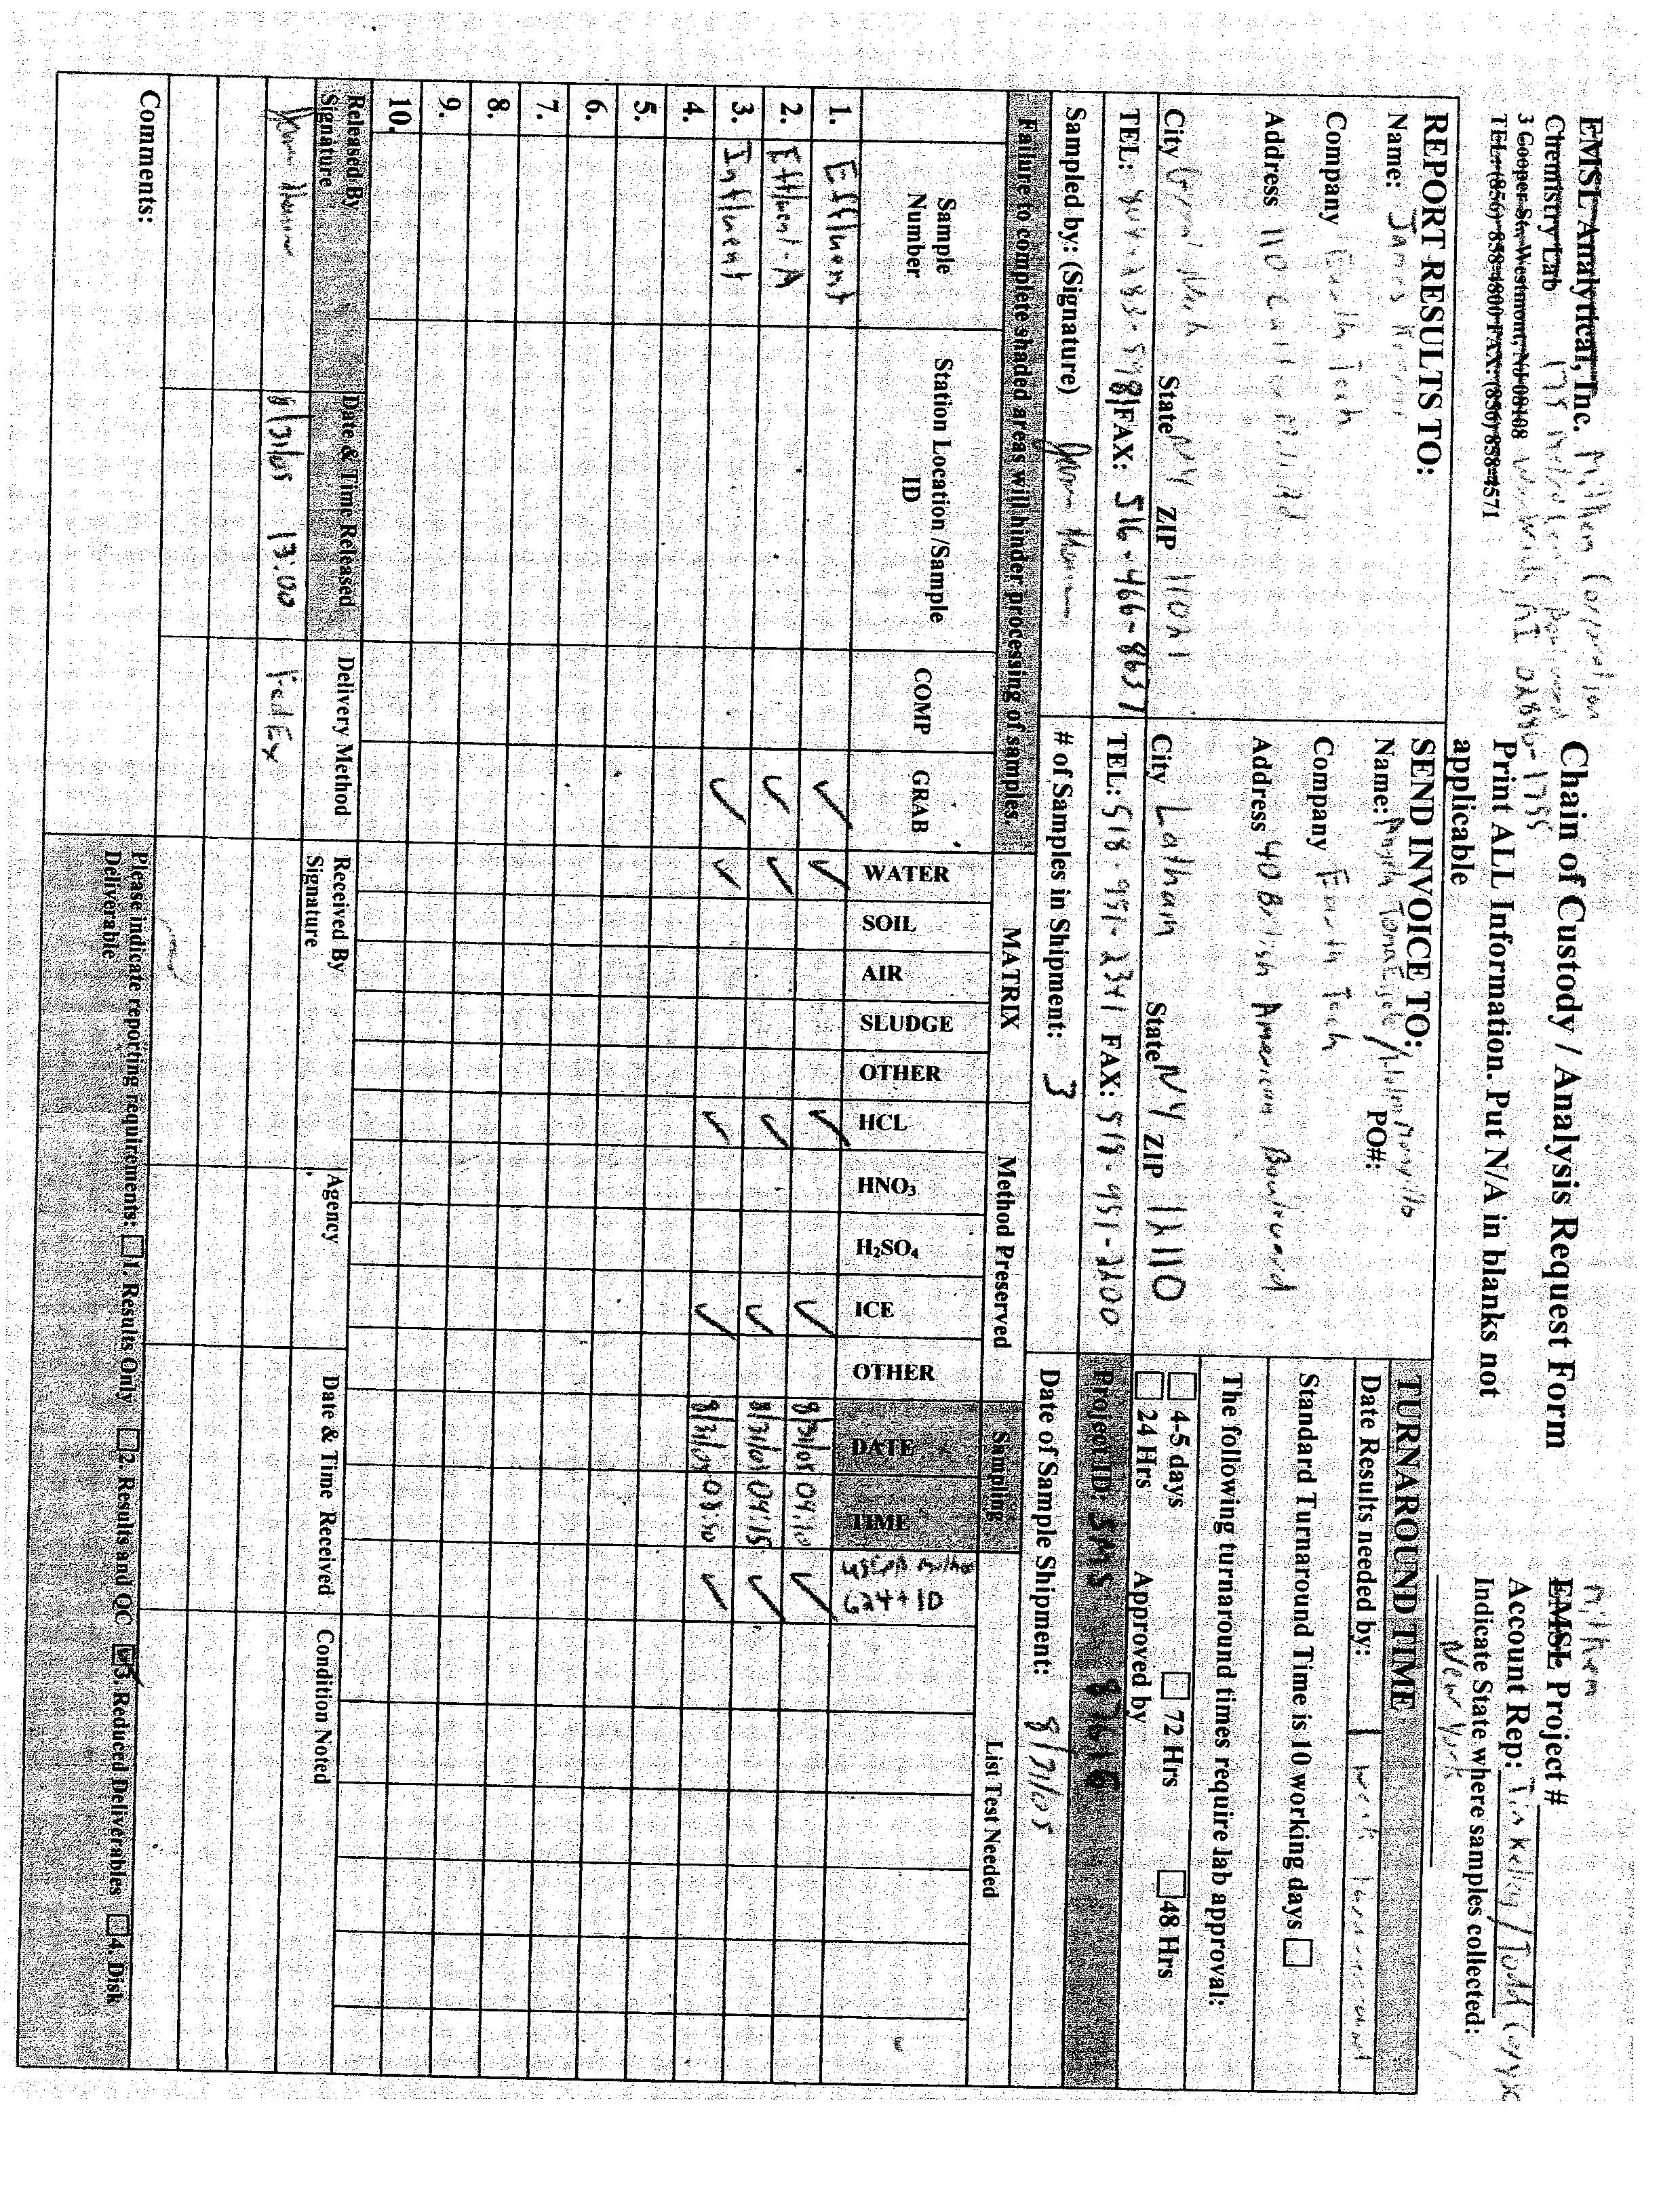 EMSL Analytical, Inc. Mitkem Corporation
Chemistry Lab 175 Metro Center Boulevard
3 Cooper St., Westmont, NJ 08108 Warwick, RI 02886-1755
TEL: (856) 858-4800 FAX: (856) 858-4571
Chain of Custody / Analysis Request Form
Print ALL Information. Put N/A in blanks not
applicable
Mitkem
EMSL Project #
Account Rep: Kelley / Todd
Indicate State where samples collected:
New York
REPORT RESULTS TO:
Name: James
Company Earth Tech
Address 110
City Great Neck State NY ZIP 11021
TEL: FAX: 516-466-8637
SEND INVOICE TO:
Name: Angela PO#:
Company Earth Tech
Address 40 British American Boulevard
City Latham State NY ZIP 12110
TEL: 518-951-2341 FAX: 518-951-2200
TURNAROUND TIME
Date Results needed by:
Standard Turnaround Time is 10 working days
The following turnaround times require lab approval:
4-5 days 72 Hrs 48 Hrs
24 Hrs Approved by
Project ID: SMS
Sampled by: (Signature)
# of Samples in Shipment: 3
Date of Sample Shipment: 8/31/05
Failure to complete shaded areas will hinder processing of samples.
MATRIX
Method Preserved
Sampling
List Test Needed
Sample Number
Station Location /Sample ID
COMP
GRAB
WATER
SOIL
AIR
SLUDGE
OTHER
HCL
HNO₃
H₂SO₄
ICE
OTHER
DATE
TIME
USEPA Method
624+10
1. Effluent ✓ ✓ ✓ ✓ 8/31/05 09:10 ✓
2. Effluent-A ✓ ✓ ✓ ✓ 8/31/05 09:15 ✓
3. Influent ✓ ✓ ✓ ✓ 8/31/05 08:50 ✓
4.
5.
6.
7.
8.
9.
10.
Released By Signature
Date & Time Released
Delivery Method
Received By Signature
Agency
Date & Time Received
Condition Noted
8/31/05 13:00 FedEx
Comments:
Please indicate reporting requirements: 1. Results Only 2. Results and QC 3. Reduced Deliverables 4. Disk
Deliverable